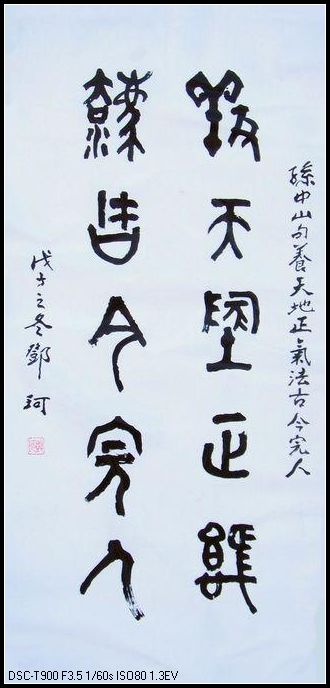 孫中山句養天地正氣法古今完人
養天地正氣
法古今完人
戊子之冬鄧珂
DSC-T900 F3.5 1/60s ISO80 1.3EV